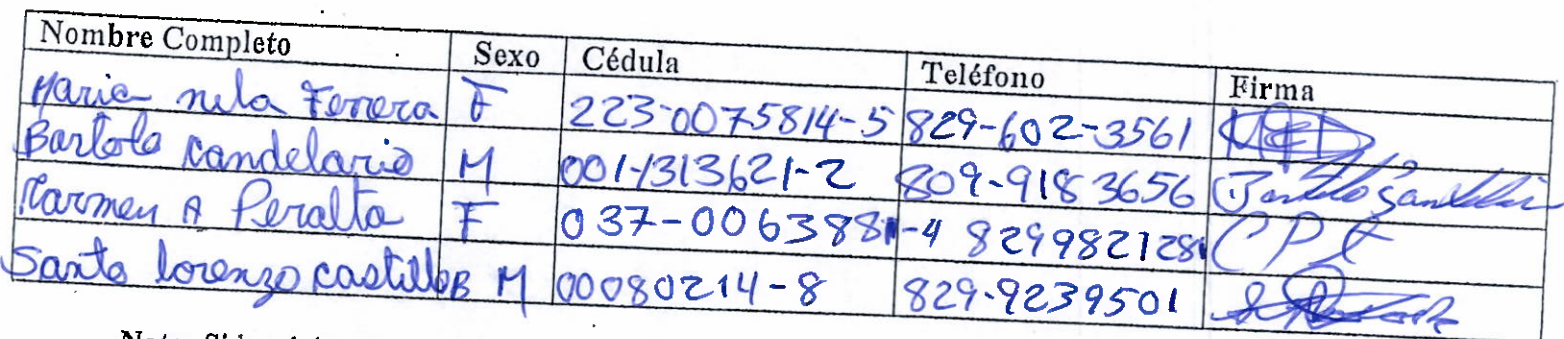 Nombre Completo Sexo Cédula Teléfono Firma
Maria nela Ferrera F 223-0075814-5 829-602-3561
Bartolo Candelario M 001-1313621-2 809-9183656
Carmen A Peralta F 037-0063881-4 8299821281 CPE
Santo lorenzo castillo B M 00080214-8 829-9239501